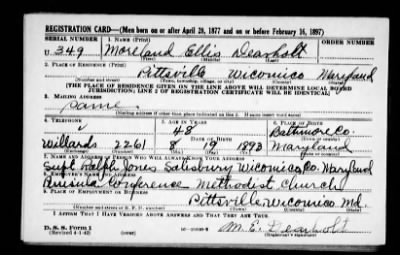 REGISTRATION CARD—(Men born on or after April 28, 1877 and on or before February 16, 1897)
SERIAL NUMBER 1. NAME (Print) ORDER NUMBER
U 349 Moreland Ellis Dearholt
(First) (Middle) (Last)
2. PLACE OF RESIDENCE (Print)
Pittsville Wicomico Maryland
(Number and street) (Town, township, village, or city) (County) (State)
[THE PLACE OF RESIDENCE GIVEN ON THE LINE ABOVE WILL DETERMINE LOCAL BOARD
JURISDICTION; LINE 2 OF REGISTRATION CERTIFICATE WILL BE IDENTICAL]
3. MAILING ADDRESS
Same.
4. TELEPHONE 5. AGE IN YEARS 6. PLACE OF BIRTH
48 Baltimore Co.
DATE OF BIRTH
Willards 2261 8 19 1893 Maryland
7. NAME AND ADDRESS OF PERSON WHO WILL ALWAYS KNOW YOUR ADDRESS
Supt. Ralph Jones Salisbury Wicomico, Co. Maryland
8. EMPLOYER'S NAME AND ADDRESS
Peninsula Conference Methodist Church
9. PLACE OF EMPLOYMENT OR BUSINESS
Pittsville Wicomico Md.
(Number and street or R. F. D. number) (Town) (County) (State)
I AFFIRM THAT I HAVE VERIFIED ABOVE ANSWERS AND THAT THEY ARE TRUE.
D. S. S. Form 1
(Revised 4-1-42) (over)
M. E. Dearholt
(Registrant's signature)